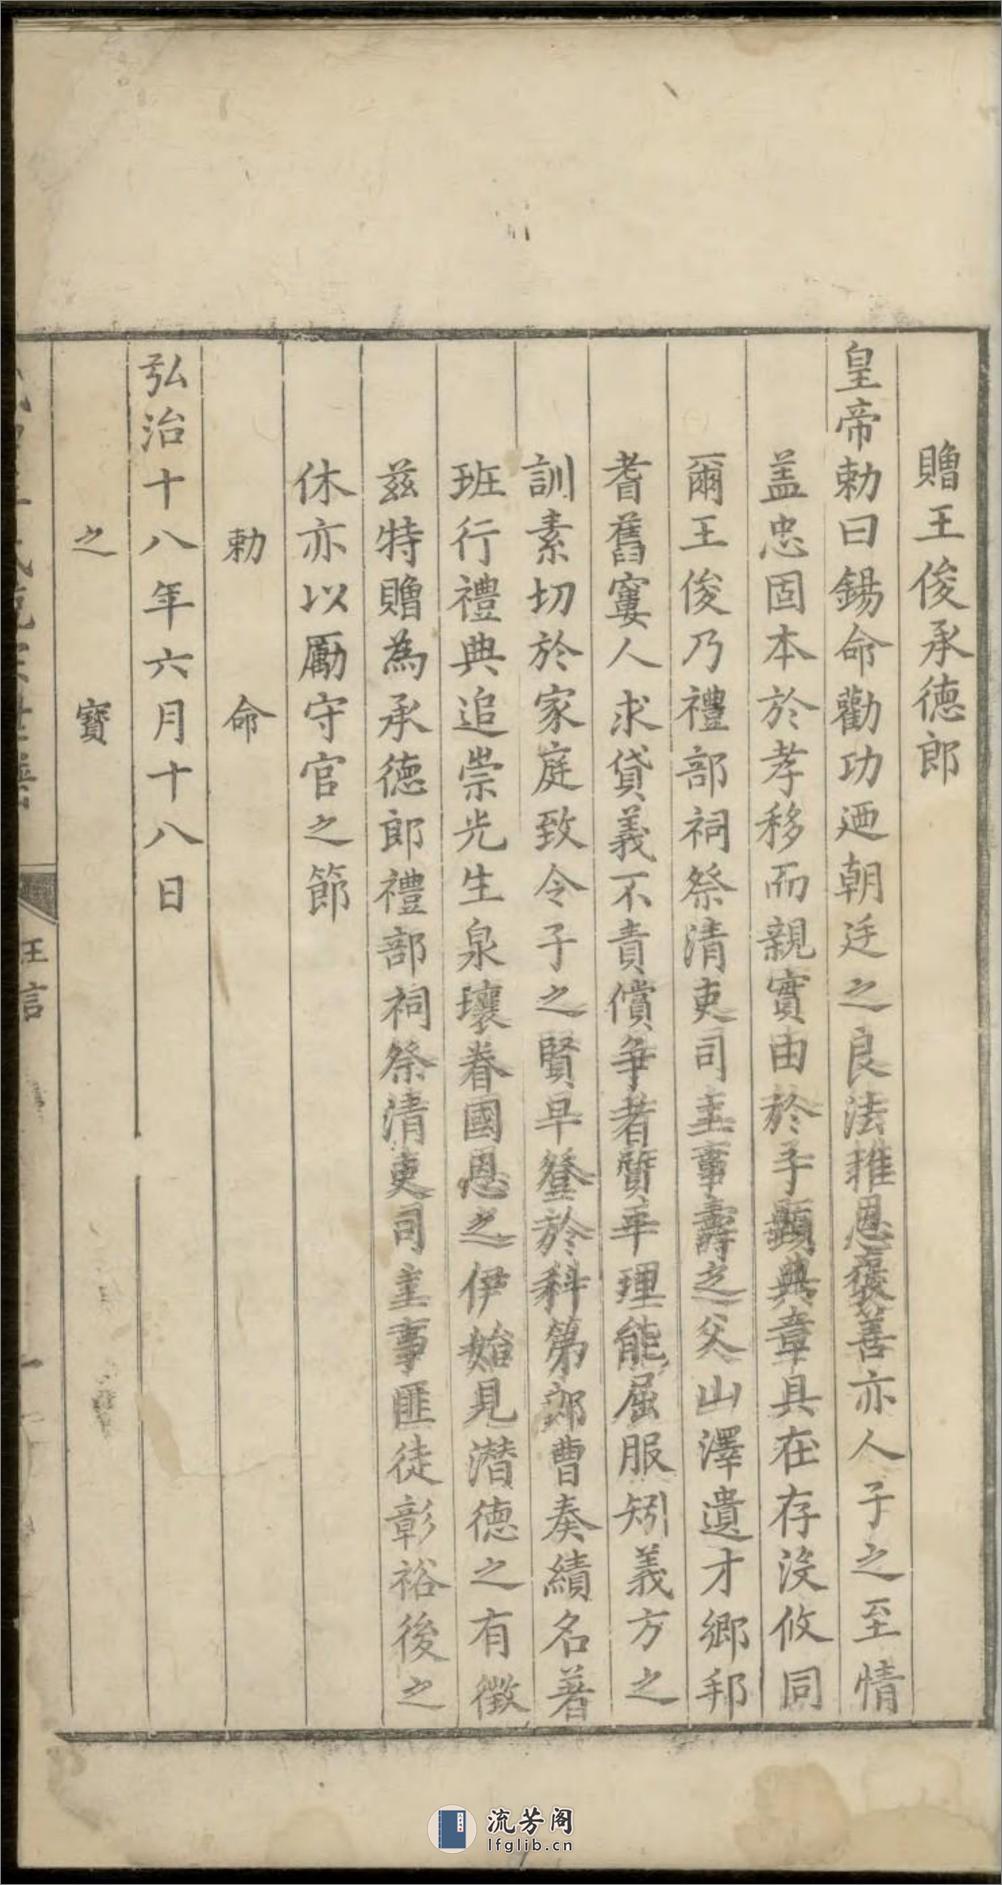 贈王俊承德郎
皇帝勅曰錫命勸功迺朝廷之良法推恩褒善亦人子之至情
盖忠固本於孝移而親實由於子顯典章具在存没攸同
爾王俊乃禮部祠祭清吏司主事壽之父山澤遺才鄉邦
耆舊窶人求貸義不責償争者質平理能屈服矧義方之
訓素切於家庭致令子之賢早登於科第郎曹奏績名著
班行禮典追崇光生泉壤眷國恩之伊始見潛德之有徵
兹特贈為承德郎禮部祠祭清吏司主事匪徒彰裕後之
休亦以勵守官之節
勅命
弘治十八年六月十八日
之寶
王言
一
流芳阁
lfglib.cn